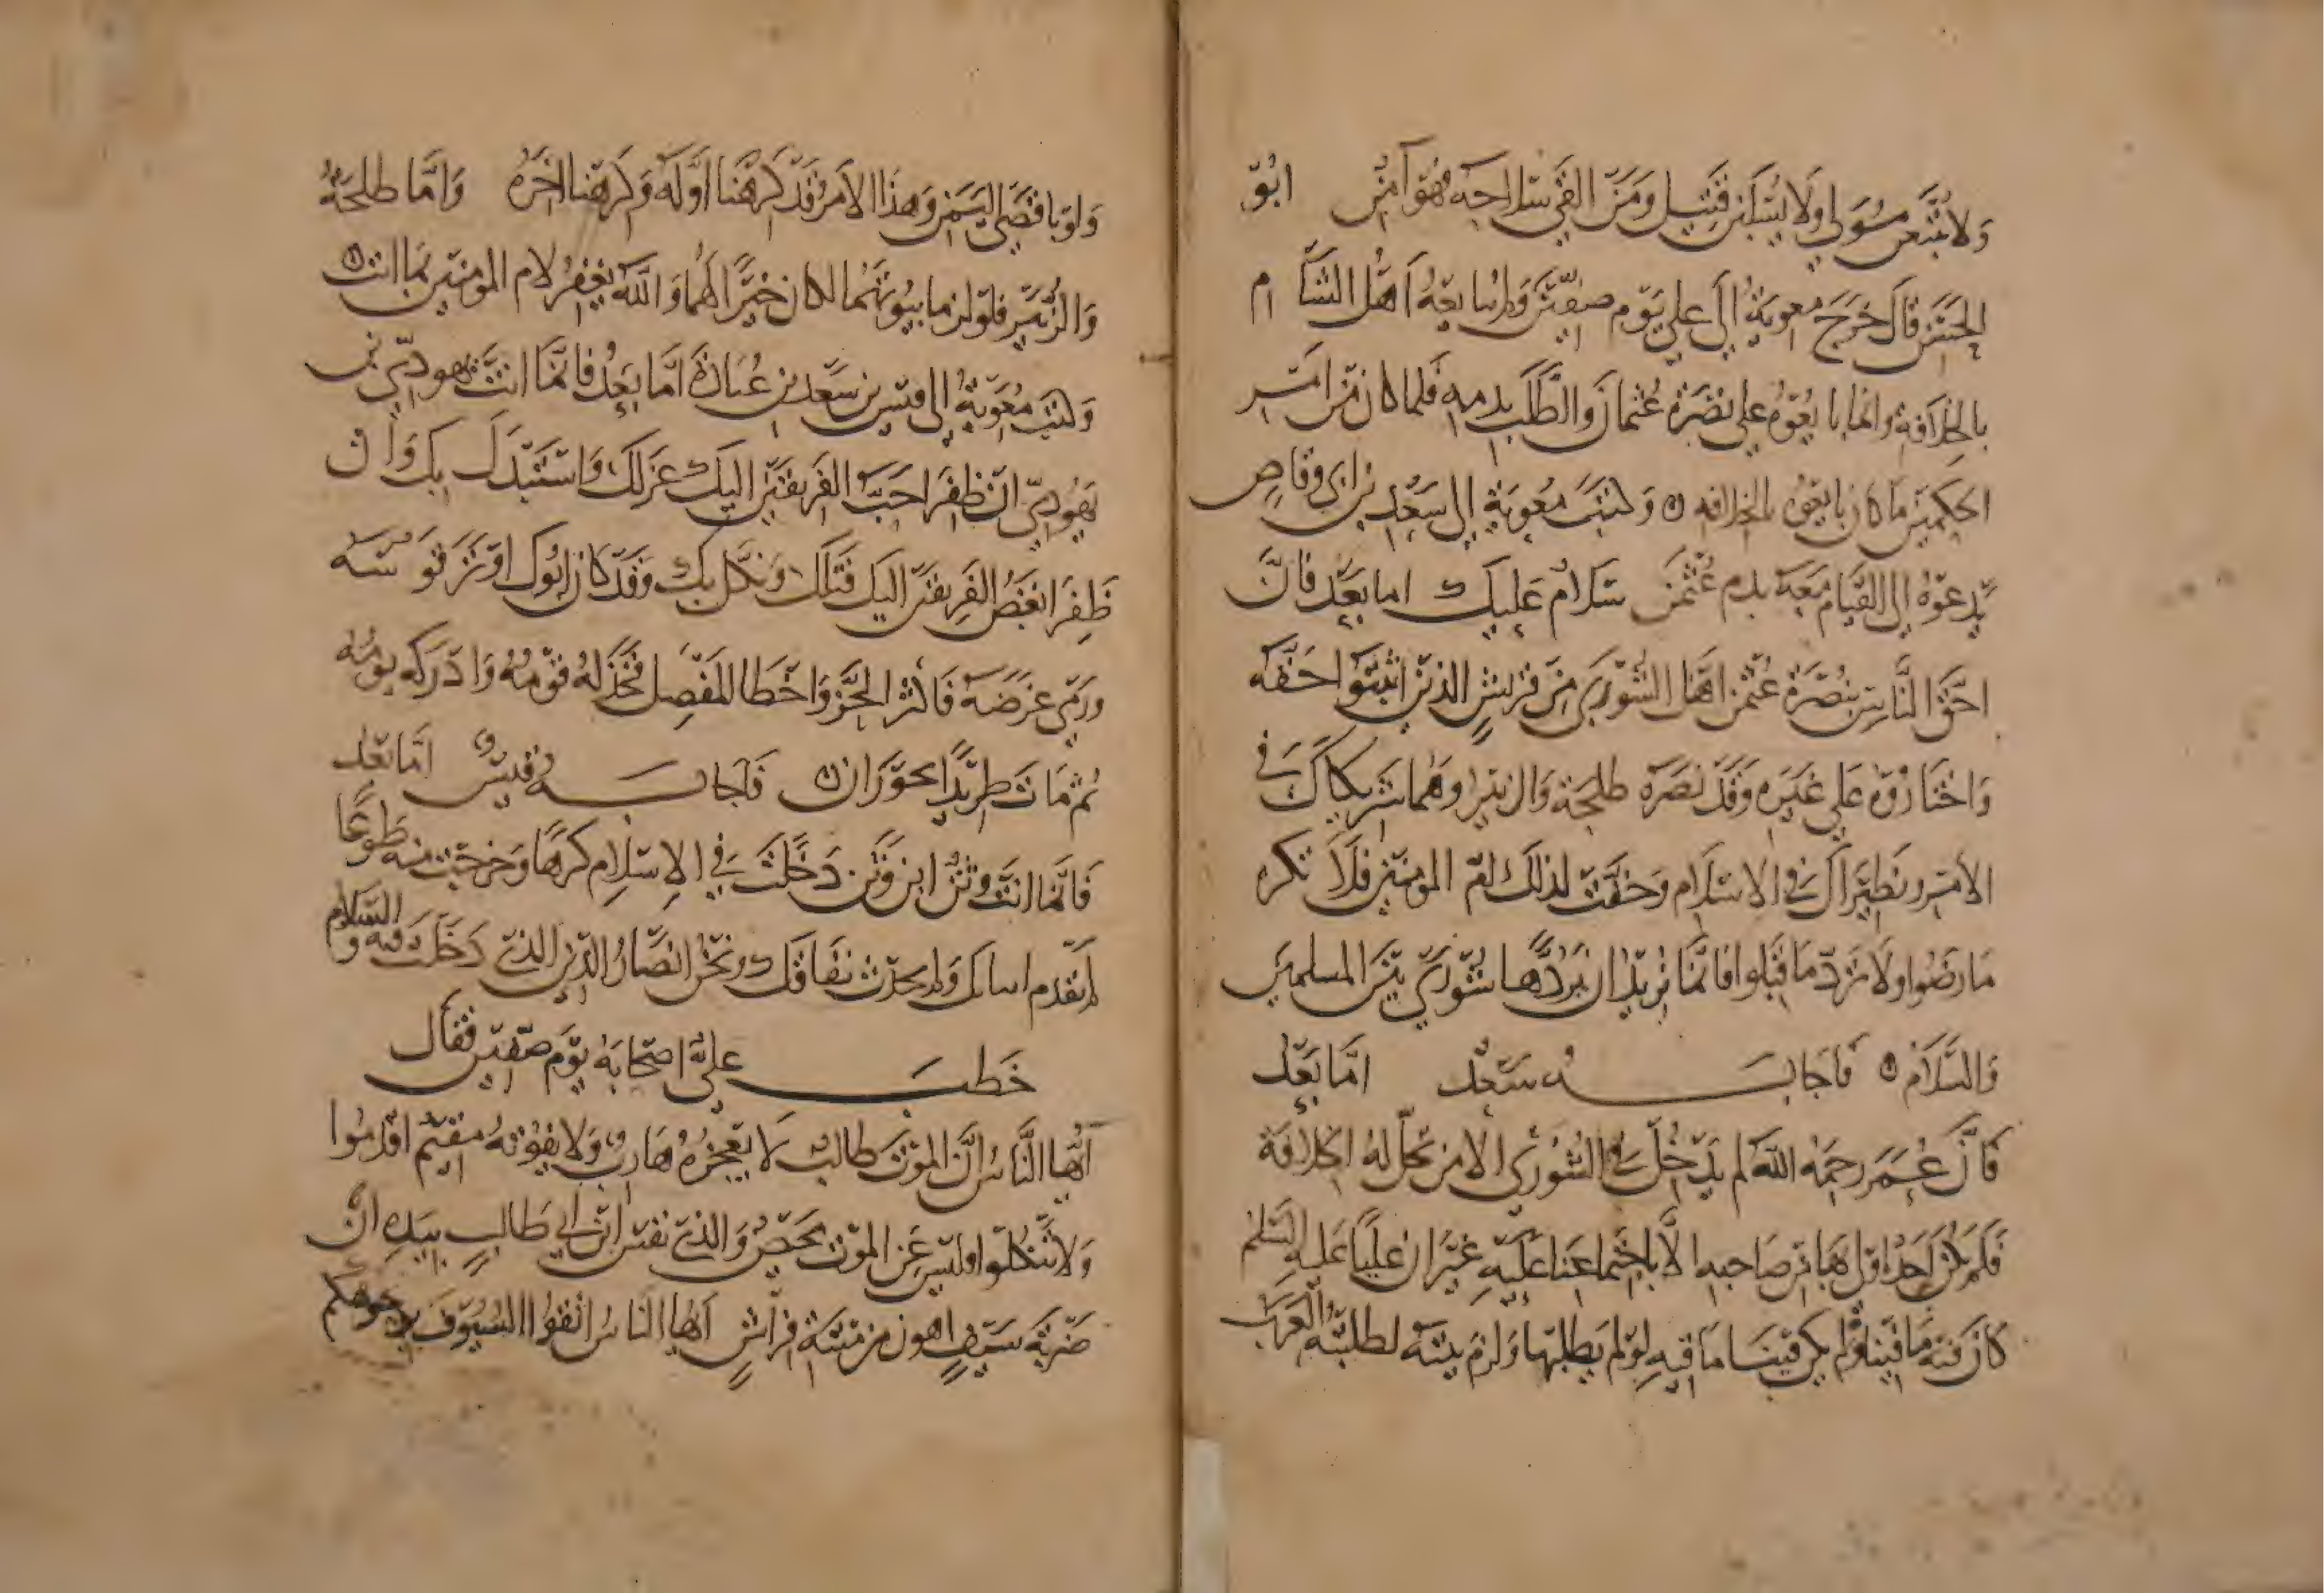 ولا يتبعن مولي ولا يسلبن قتيل ومن القى سلاحه فهو آمن ابو
الحسن قال خرج معوية الى علي يوم صفين ولم يبايعه اهل الشام
بالخلافة وانما بايعوه على نصرة عثمان والطلب بدمه فلما كان من امر
الحكمين ما كان بايعوه بالخلافه وكتب معوية الى سعد بن ابى وقاص
يدعوه الى القيام معه بدم عثمن سلام عليك اما بعد فان
احق الناس بنصرة عثمن اهل الشورى من قريش الذين اثبتوا حقه
واختاروه على غيره وقد نصره طلحة والزبير وهما شريكاك في
الامر ونظيراك في الاسلام وخفت لذلك ام المومنين فلا تكره
ما رضوا ولا ترد ما قبلوا فانما نريد ان نردها شورى بين المسلمين
والسلام فاجابه سعد اما بعد
فان عمر رحمه الله لم يدخل في الشورى الا من تحل له الخلافة
فلم يكن احد اولى بها من صاحبه الا باجتماعنا عليه غير ان عليا عليه السلم
كان فيه ما فينا ولم يكن فينا ما فيه ولو لم يطلبها ولزم بيته لطلبته العرب
ولو باقصى اليمن وهذا الامر قد كرهنا اوله وكرهنا اخره واما طلحة
والزبير فلو لزما بيوتهما لكان خيرا لهما والله يغفر لام المومنين بما اتت
وكتب معوية الى قيس بن سعد بن عبادة اما بعد فانما انت يهودي بن
يهودي ان ظفر احب الفريقين اليك عزلك واستبدل بك وان
ظفر ابغض الفريقين اليك قتلك ونكل بك وقد كان ابوك اوتر قوسه
ورمى غرضه فاكثر الحز واخطا المفصل فخذله قومه وادركه يومه
ثم مات طريدا بحوران فاجابه قيس اما بعد
فانما انت وثن ابن وثن دخلت في الاسلام كرها وخرجت منه طوعا
لم يقدم ايمانك ولم يحدث نفاقك ونحن انصار الدين الذي خرجت منه
خطب علي اصحابه يوم صفين فقال
ايها الناس ان الموت طالب لا يعجزه هارب ولا يفوته مقيم اقدموا
ولا تنكلوا وليس عن الموت محيص والذي نفس ابن ابي طالب بيده ان
ضربة سيف اهون من ميتة فراش ايها الناس اتقوا السيوف بوجوهكم